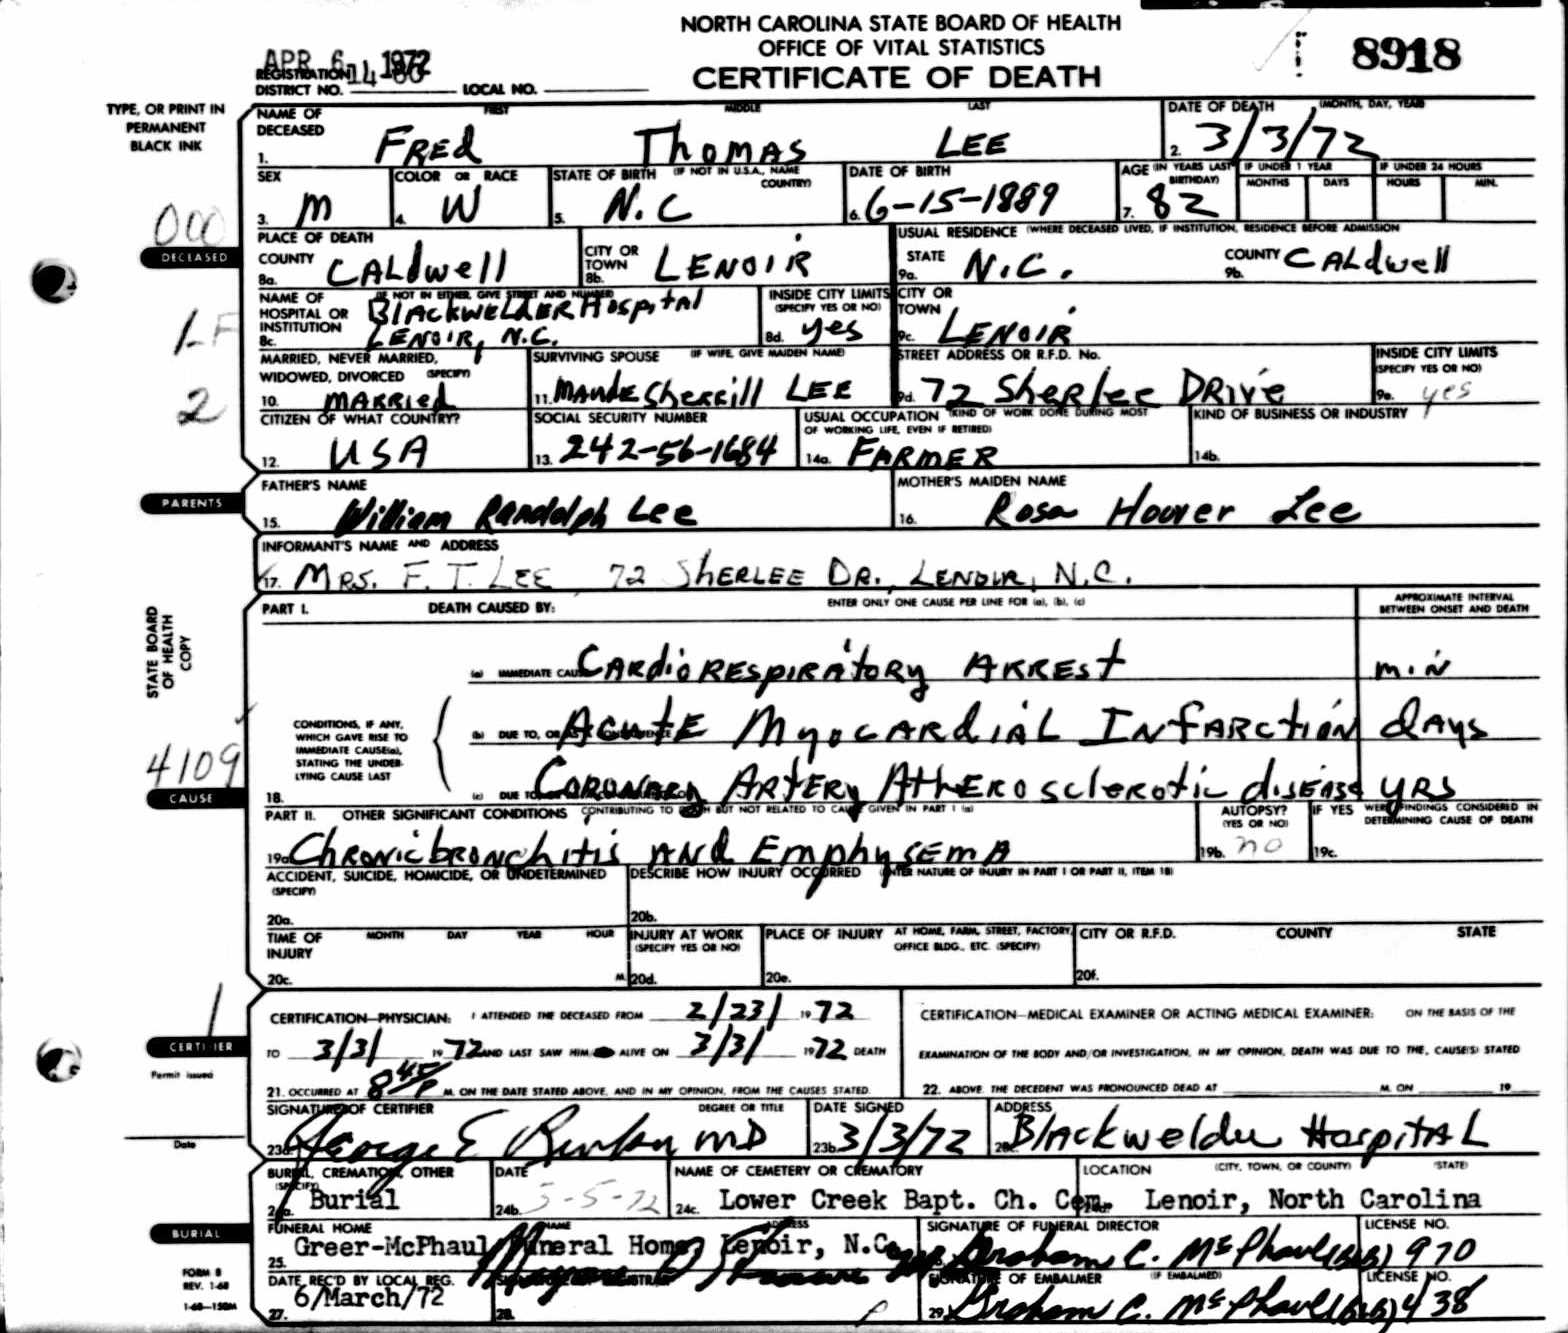 NORTH CAROLINA STATE BOARD OF HEALTH
OFFICE OF VITAL STATISTICS
CERTIFICATE OF DEATH
8918
APR 6 1972
REGISTRATION DISTRICT NO. LOCAL NO.
TYPE, OR PRINT IN PERMANENT BLACK INK
NAME OF DECEASED FIRST MIDDLE LAST DATE OF DEATH (MONTH, DAY, YEAR)
1. FREd ThomAS LEE 2. 3/3/72
SEX COLOR OR RACE STATE OF BIRTH (IF NOT IN U.S.A., NAME COUNTRY) DATE OF BIRTH AGE (IN YEARS LAST BIRTHDAY) IF UNDER 1 YEAR MONTHS DAYS IF UNDER 24 HOURS HOURS MIN.
3. M 4. W 5. N.C 6. 6-15-1889 7. 82
000
DECEASED
PLACE OF DEATH USUAL RESIDENCE (WHERE DECEASED LIVED, IF INSTITUTION, RESIDENCE BEFORE ADMISSION
COUNTY 8a. CALdwell CITY OR TOWN 8b. LENOIR STATE 9a. N.C. COUNTY 9b. CALdwell
NAME OF HOSPITAL OR INSTITUTION (IF NOT IN EITHER, GIVE STREET AND NUMBER) 8c. BlAckwElDER Hospital LENOIR, N.C. INSIDE CITY LIMITS (SPECIFY YES OR NO) 8d. yes CITY OR TOWN 9c. LENOIR
1-F
MARRIED, NEVER MARRIED, WIDOWED, DIVORCED (SPECIFY) 10. MARRIEd SURVIVING SPOUSE (IF WIFE, GIVE MAIDEN NAME) 11. MAUdE Sherrill LEE STREET ADDRESS OR R.F.D. No. 9d. 72 Sherlee DRive INSIDE CITY LIMITS (SPECIFY YES OR NO) 9e. yes
2
CITIZEN OF WHAT COUNTRY? 12. USA SOCIAL SECURITY NUMBER 13. 242-56-1684 USUAL OCCUPATION (KIND OF WORK DONE DURING MOST OF WORKING LIFE, EVEN IF RETIRED) 14a. FARMER KIND OF BUSINESS OR INDUSTRY 14b.
PARENTS
FATHER'S NAME 15. William Randolph Lee MOTHER'S MAIDEN NAME 16. Rosa Hoover Lee
INFORMANT'S NAME AND ADDRESS
17. MRS. F. T. LEE 72 SHERLEE DR., LENOIR, N.C.
STATE BOARD OF HEALTH COPY
PART I. DEATH CAUSED BY: ENTER ONLY ONE CAUSE PER LINE FOR (a), (b), (c) APPROXIMATE INTERVAL BETWEEN ONSET AND DEATH
(a) IMMEDIATE CAUSE CARdioRESpiRAtory ARREST min
CONDITIONS, IF ANY, WHICH GAVE RISE TO IMMEDIATE CAUSE(a), STATING THE UNDERLYING CAUSE LAST
(b) DUE TO, OR AS A CONSEQUENCE AcutE MyoCARdiAL INfARction days
4109
CAUSE
18. (c) DUE TO CORONARy ARTERy AtHERosclerotic disease yRS
PART II. OTHER SIGNIFICANT CONDITIONS CONTRIBUTING TO DEATH BUT NOT RELATED TO CAUSE GIVEN IN PART I (a) AUTOPSY? (YES OR NO) IF YES WERE FINDINGS CONSIDERED IN DETERMINING CAUSE OF DEATH
19a. Chronic bronchitis AND EmphysEMA 19b. no 19c.
ACCIDENT, SUICIDE, HOMICIDE, OR UNDETERMINED (SPECIFY) DESCRIBE HOW INJURY OCCURRED (ENTER NATURE OF INJURY IN PART I OR PART II, ITEM 18)
20a. 20b.
TIME OF INJURY MONTH DAY YEAR HOUR INJURY AT WORK (SPECIFY YES OR NO) PLACE OF INJURY AT HOME, FARM, STREET, FACTORY, OFFICE BLDG., ETC. (SPECIFY) CITY OR R.F.D. COUNTY STATE
20c. M. 20d. 20e. 20f.
1
CERTIFIER
Permit issued
Date
CERTIFICATION—PHYSICIAN: I ATTENDED THE DECEASED FROM 2/23/ 1972
TO 3/3/ 1972 AND LAST SAW HIM ALIVE ON 3/3/ 1972 DEATH
21. OCCURRED AT 8 45/P M. ON THE DATE STATED ABOVE, AND IN MY OPINION, FROM THE CAUSES STATED.
CERTIFICATION—MEDICAL EXAMINER OR ACTING MEDICAL EXAMINER: ON THE BASIS OF THE
EXAMINATION OF THE BODY AND/OR INVESTIGATION, IN MY OPINION, DEATH WAS DUE TO THE, CAUSE(S) STATED
22. ABOVE. THE DECEDENT WAS PRONOUNCED DEAD AT M. ON 19
SIGNATURE OF CERTIFIER DEGREE OR TITLE DATE SIGNED ADDRESS
23a. George E MD 23b. 3/3/72 23c. Blackwelder HospitAL
BURIAL, CREMATION, OTHER (SPECIFY) DATE NAME OF CEMETERY OR CREMATORY LOCATION (CITY, TOWN, OR COUNTY) (STATE)
24a. Burial 24b. 3-5-72 24c. Lower Creek Bapt. Ch. Cem. 24d. Lenoir, North Carolina
BURIAL
FUNERAL HOME NAME ADDRESS SIGNATURE OF FUNERAL DIRECTOR LICENSE NO.
25. Greer-McPhaul Funeral Home, Lenoir, N.C. Graham C. McPhaul 970
FORM 8
REV. 1-68
1-68—150M
DATE REC'D BY LOCAL REG. SIGNATURE OF REGISTRAR SIGNATURE OF EMBALMER (IF EMBALMED) LICENSE NO.
27. 6/March/72 28. 29. Graham C. McPhaul 438